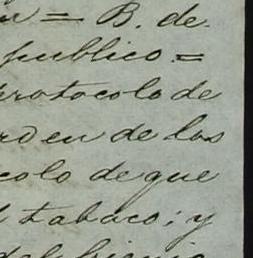 = B. de
publico =
protocolo de
orden de los
colo de que
tabaco; y
del bienio